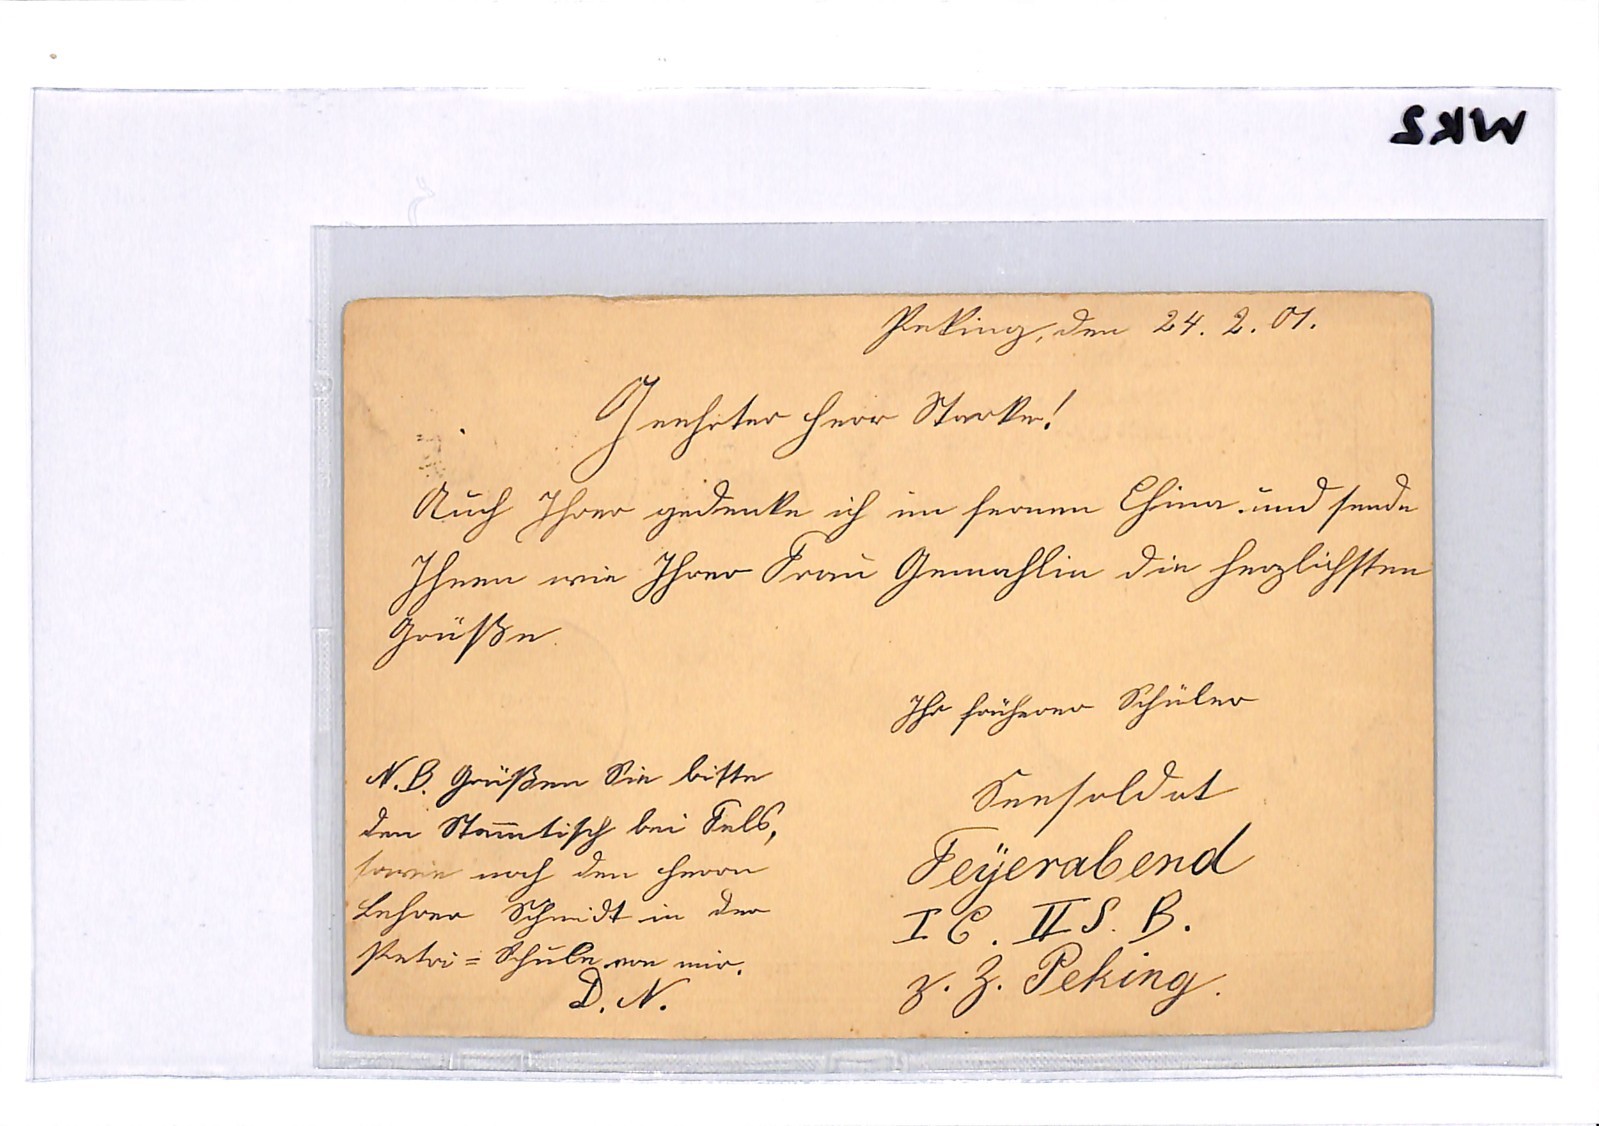 WK2
Peking, den 24. 2. 01.
Geehrter Herr Starke!
Auch Ihrer gedenke ich im fernen China und sende
Ihnen wie Ihrer Frau Gemahlin die herzlichsten
Grüße.
Ihr früherer Schüler
Seesoldat
Feÿerabend
I C. II S. B.
z. Z. Peking.
N. B. Grüßen Sie bitte
den Stam̅tisch bei Fels,
sowie noch den Herrn
Lehrer Schmidt in der
Petri=Schule von mir.
D. N.